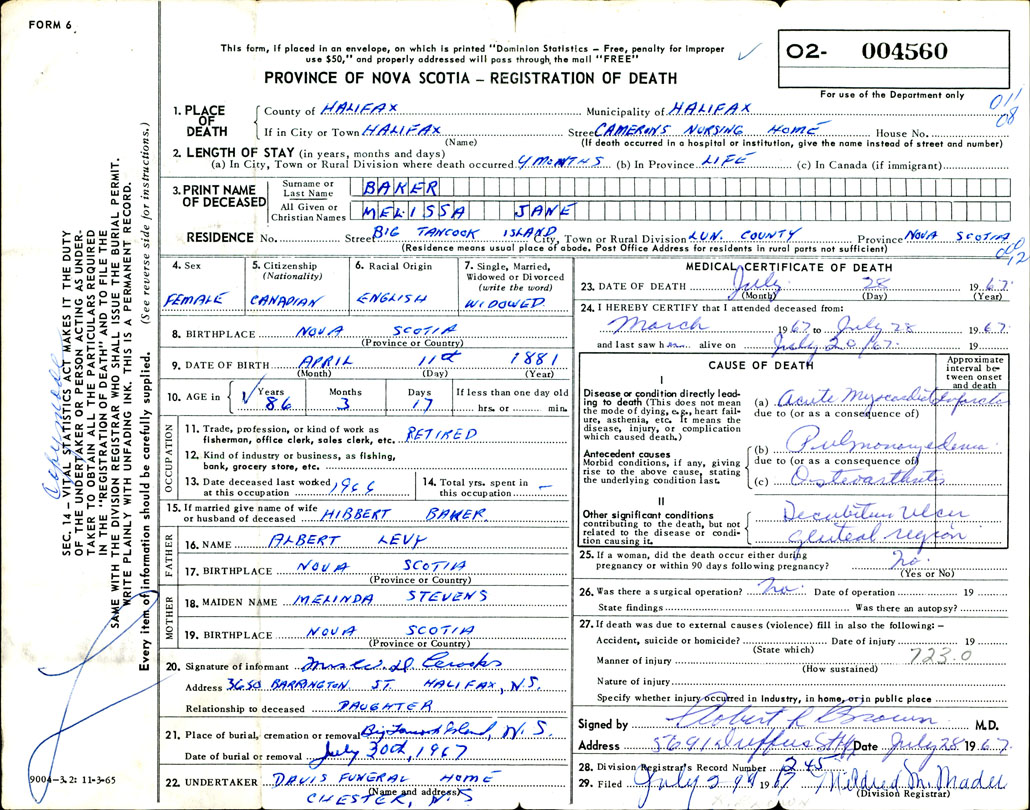 FORM 6
This form, if placed in an envelope, on which is printed "Dominion Statistics – Free, penalty for improper
use $50," and properly addressed will pass through the mail "FREE"
PROVINCE OF NOVA SCOTIA – REGISTRATION OF DEATH
O2- 004560
For use of the Department only
011
08
1. PLACE OF DEATH
County of HALIFAX Municipality of HALIFAX
If in City or Town HALIFAX Street CAMERONS NURSING HOME House No.
(Name) (If death occurred in a hospital or institution, give the name instead of street and number)
2. LENGTH OF STAY (in years, months and days)
(a) In City, Town or Rural Division where death occurred 4 MONTHS (b) In Province LIFE (c) In Canada (if immigrant)
3. PRINT NAME OF DECEASED
Surname or Last Name BAKER
All Given or Christian Names MELISSA JANE
RESIDENCE No. Street BIG TANCOOK ISLAND City, Town or Rural Division LUN. COUNTY Province NOVA SCOTIA
(Residence means usual place of abode. Post Office Address for residents in rural parts not sufficient)
4. Sex
FEMALE
5. Citizenship
(Nationality)
CANADIAN
6. Racial Origin
ENGLISH
7. Single, Married,
Widowed or Divorced
(write the word)
WIDOWED
8. BIRTHPLACE NOVA SCOTIA
(Province or Country)
9. DATE OF BIRTH APRIL 11th 1881
(Month) (Day) (Year)
10. AGE in Years Months Days If less than one day old
86 3 17 hrs. or min.
OCCUPATION
11. Trade, profession, or kind of work as
fisherman, office clerk, sales clerk, etc. RETIRED
12. Kind of industry or business, as fishing,
bank, grocery store, etc.
13. Date deceased last worked
at this occupation 1966
14. Total yrs. spent in
this occupation –
15. If married give name of wife
or husband of deceased HIBBERT BAKER.
FATHER
16. NAME ALBERT LEVY
17. BIRTHPLACE NOVA SCOTIA
(Province or Country)
MOTHER
18. MAIDEN NAME MELINDA STEVENS
19. BIRTHPLACE NOVA SCOTIA
(Province or Country)
20. Signature of informant Mrs W. D. Crooks
Address 3650 BARRINGTON ST. HALIFAX, N.S.
Relationship to deceased DAUGHTER
21. Place of burial, cremation or removal Big Tancook Island, N.S.
Date of burial or removal July 30th, 1967
22. UNDERTAKER DAVIS FUNERAL HOME
(Name and address)
CHESTER, N.S
MEDICAL CERTIFICATE OF DEATH
23. DATE OF DEATH July 28 1967.
(Month) (Day) (Year)
24. I HEREBY CERTIFY that I attended deceased from:
March 1967 to July 28 1967.
and last saw her alive on July 20/67. 19
CAUSE OF DEATH
Approximate
interval be-
tween onset
and death
I
Disease or condition directly lead-
ing to death (This does not mean
the mode of dying, e.g., heart fail-
ure, asthenia, etc. It means the
disease, injury, or complication
which caused death.)
(a) Acute Myocardial Infarction
due to (or as a consequence of)
Antecedent causes
Morbid conditions, if any, giving
rise to the above cause, stating
the underlying condition last.
(b) Pulmonary edema
due to (or as a consequence of)
(c) Osteoarthritis
II
Other significant conditions
contributing to the death, but not
related to the disease or condi-
tion causing it.
Decubitus Ulcer
gluteal region
25. If a woman, did the death occur either during
pregnancy or within 90 days following pregnancy? No.
(Yes or No)
26. Was there a surgical operation? No. Date of operation 19
State findings Was there an autopsy?
27. If death was due to external causes (violence) fill in also the following: –
Accident, suicide or homicide? Date of injury 19
(State which)
723.0
Manner of injury
(How sustained)
Nature of injury
Specify whether injury occurred in Industry, in home, or in public place
Signed by Robert R Brown M.D.
Address 5691 Duffus St Hfx Date July 28 1967.
28. Division Registrar's Record Number 245
29. Filed July 29th 1967 Mildred M. Mader
(Division Registrar)
SEC. 14 – VITAL STATISTICS ACT MAKES IT THE DUTY
OF THE UNDERTAKER OR PERSON ACTING AS UNDER-
TAKER TO OBTAIN ALL THE PARTICULARS REQUIRED
IN THE "REGISTRATION OF DEATH" AND TO FILE THE
SAME WITH THE DIVISION REGISTRAR WHO SHALL ISSUE THE BURIAL PERMIT.
WRITE PLAINLY WITH UNFADING INK. THIS IS A PERMANENT RECORD.
Every item of information should be carefully supplied. (See reverse side for instructions.)
9004-3.2: 11-3-65